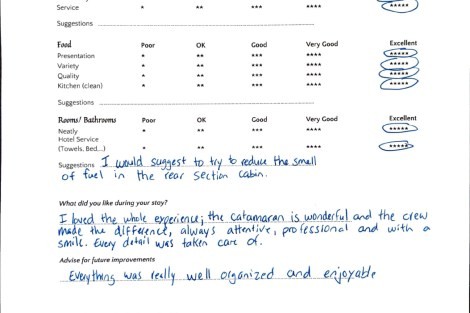 Service * ** *** **** *****
Suggestions
Food Poor OK Good Very Good Excellent
Presentation * ** *** **** *****
Variety * ** *** **** *****
Quality * ** *** **** *****
Kitchen (clean) * ** *** **** *****
Suggestions
Rooms/ Bathrooms Poor OK Good Very Good Excellent
Neatly * ** *** **** *****
Hotel Service
(Towels, Bed,..) * ** *** **** *****
Suggestions I would suggest to try to reduce the smell
of fuel in the rear section cabin.
What did you like during your stay?
I loved the whole experience; the catamaran is wonderful and the crew
made the difference, always attentive, professional and with a
smile. Every detail was taken care of.
Advise for future improvements
Everything was really well organized and enjoyable